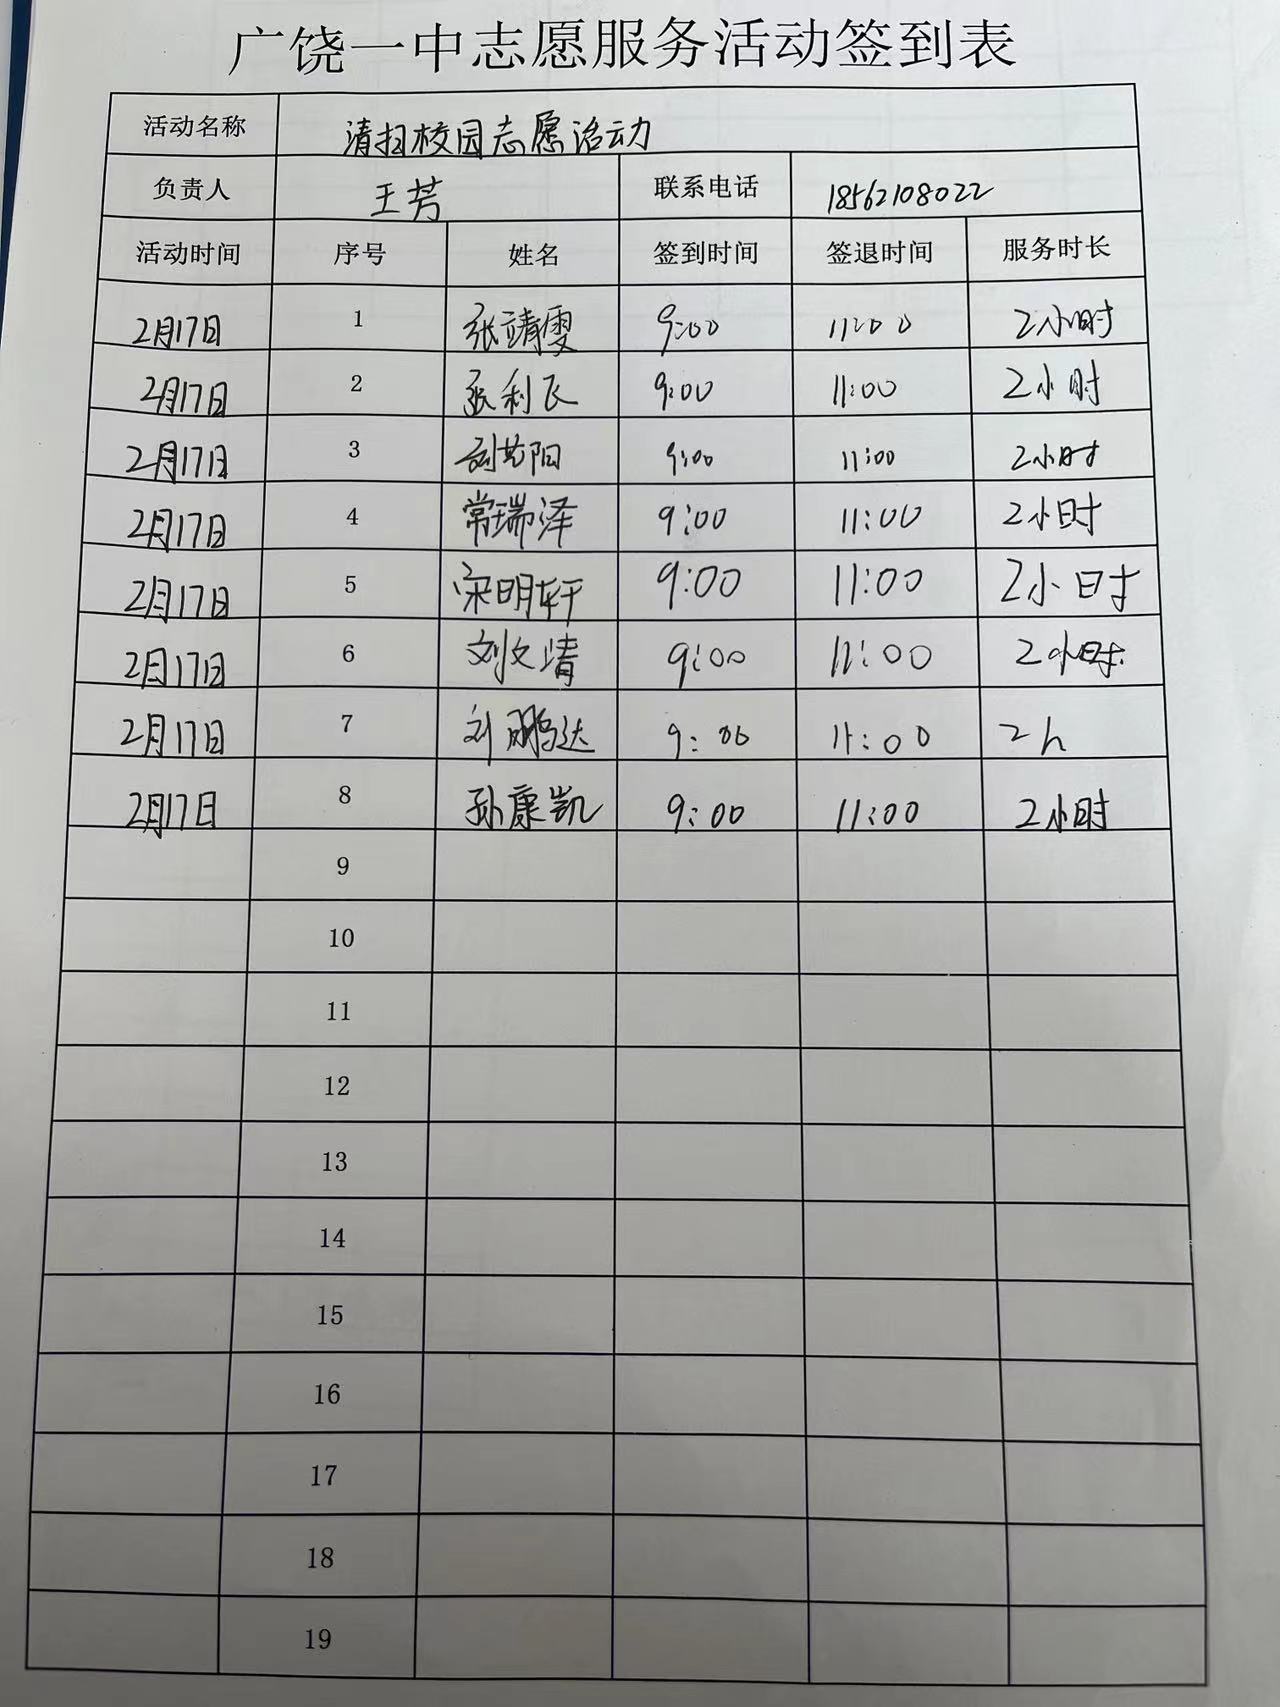 广饶一中志愿服务活动签到表
活动名称 清扫校园志愿活动
负责人 王芳 联系电话 18562108022
活动时间 序号 姓名 签到时间 签退时间 服务时长
2月17日 1 张靖雯 9:00 11:00 2小时
2月17日 2 张利飞 9:00 11:00 2小时
2月17日 3 阳 9:00 11:00 2小时
2月17日 4 常瑞泽 9:00 11:00 2小时
2月17日 5 宋明轩 9:00 11:00 2小时
2月17日 6 刘文清 9:00 11:00 2小时
2月17日 7 刘鹏达 9:00 11:00 2h
2月17日 8 孙康凯 9:00 11:00 2小时
9
10
11
12
13
14
15
16
17
18
19